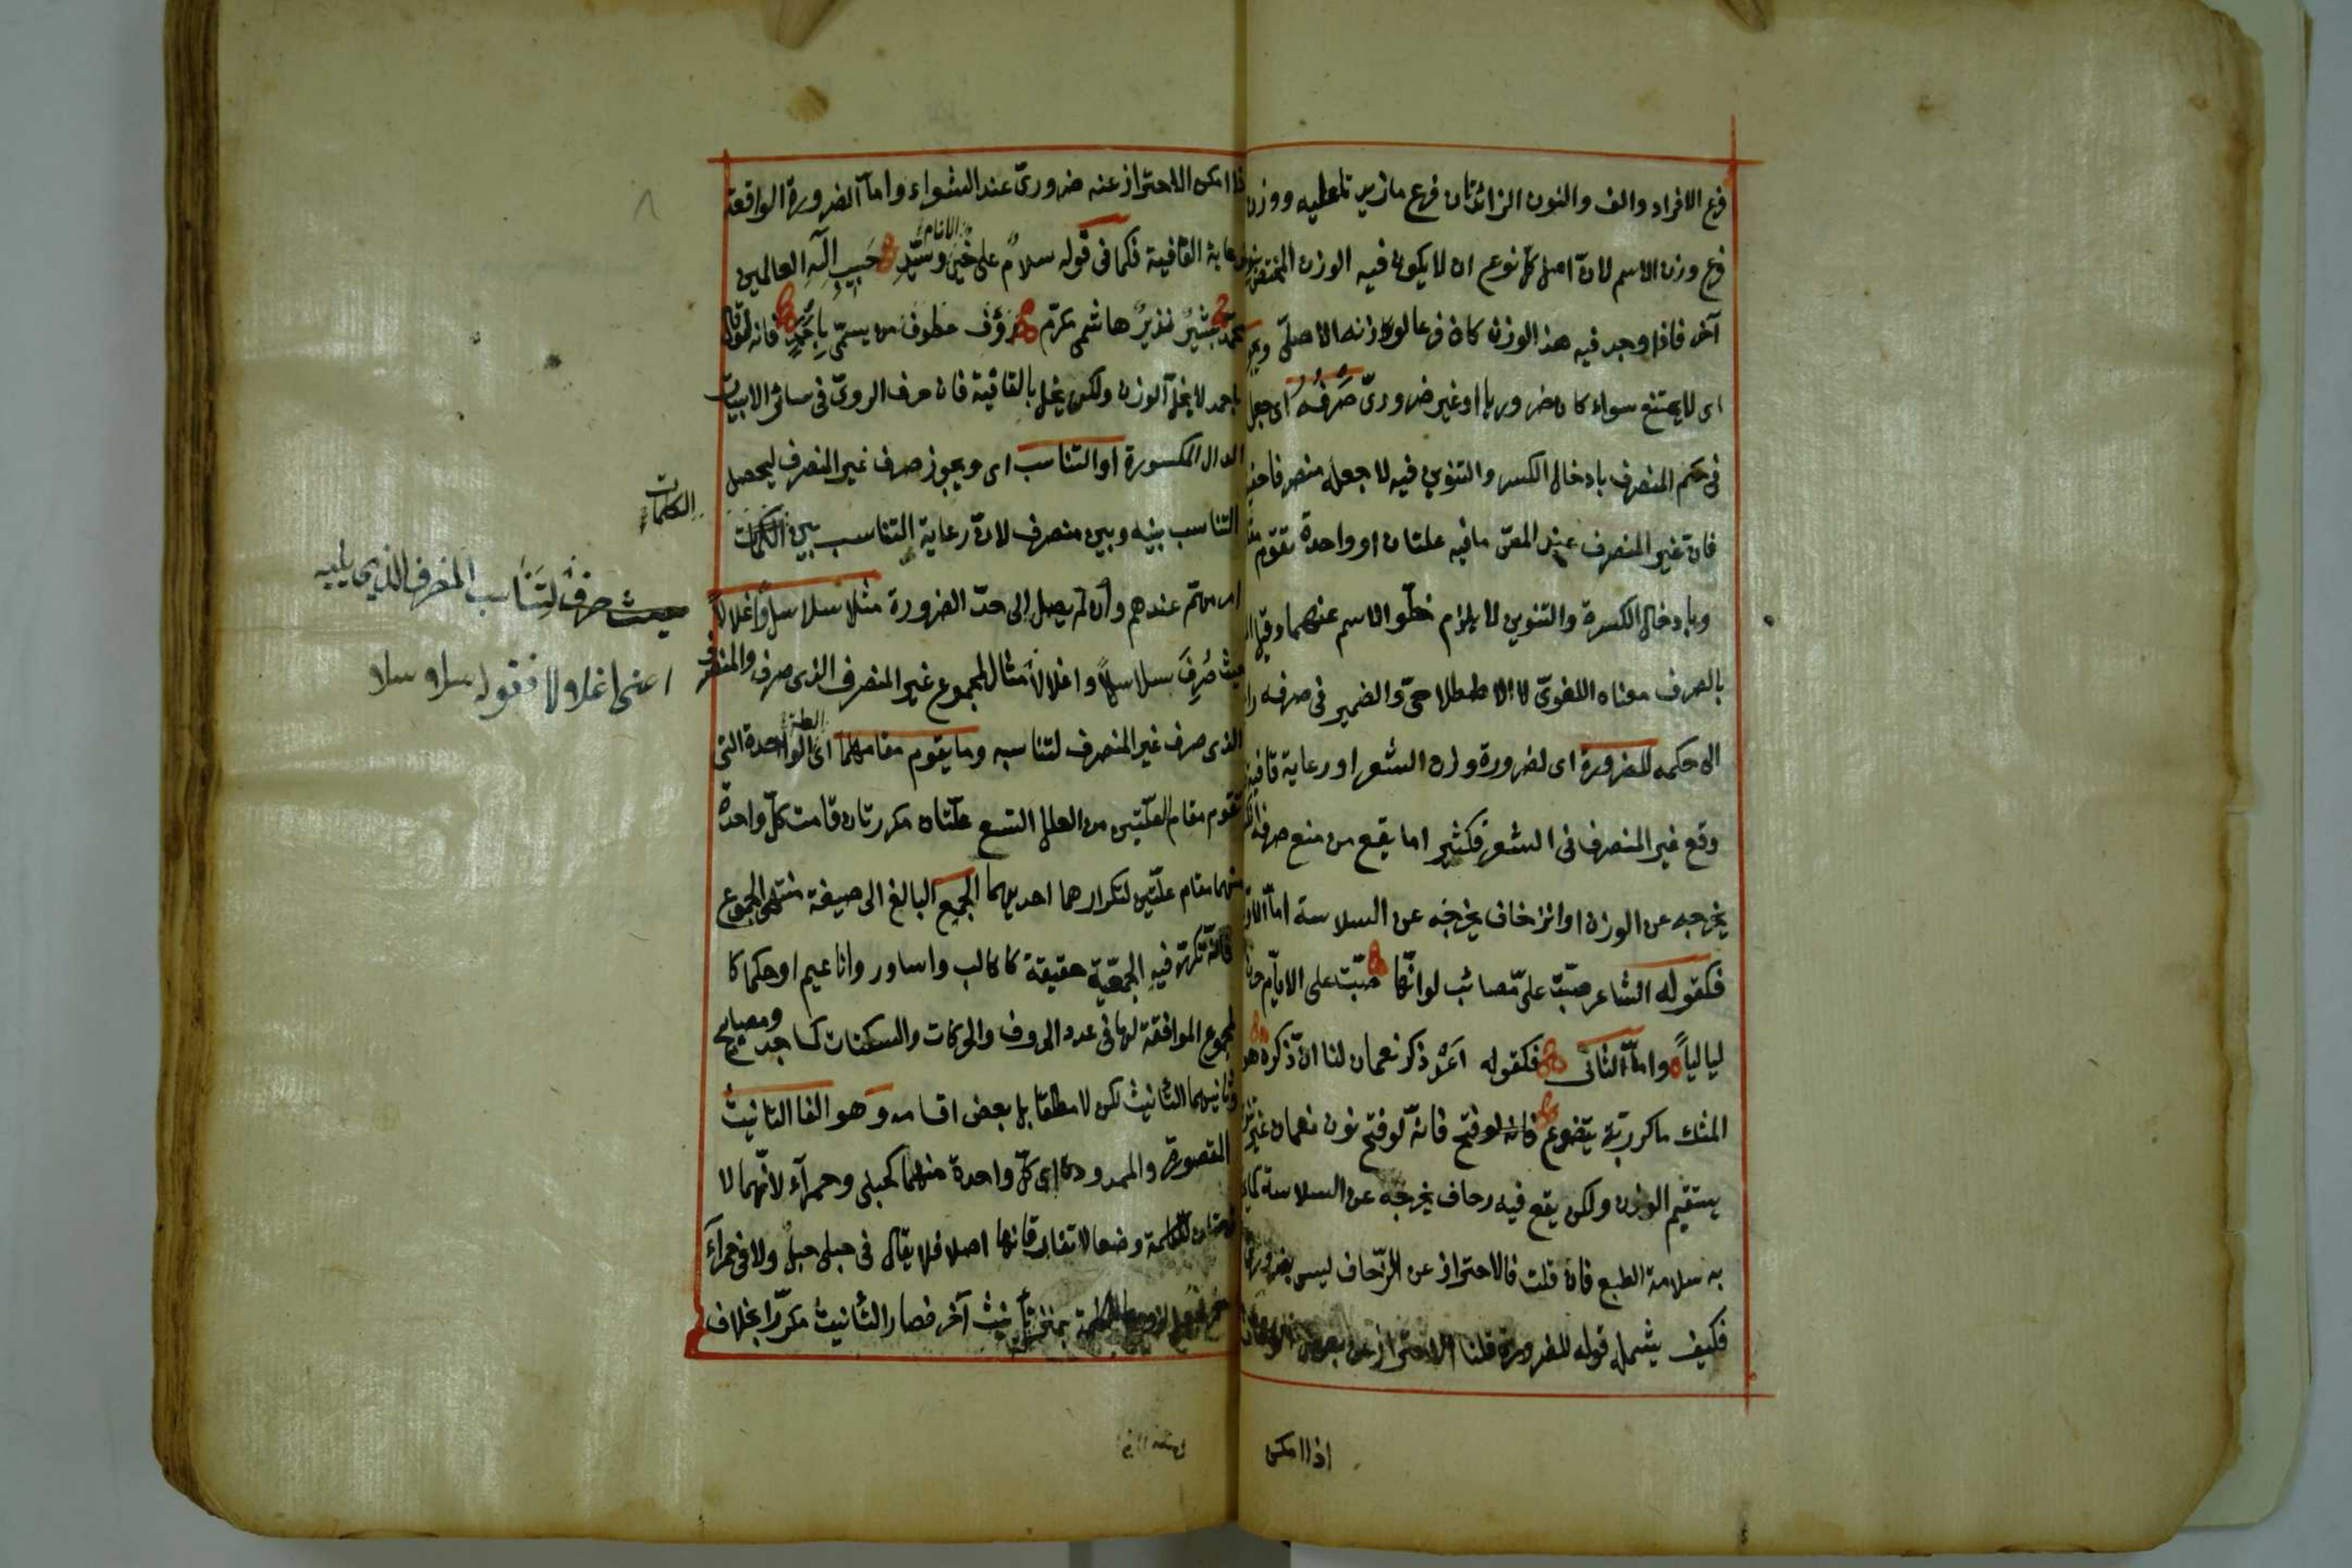 فرع الافراد والف والنون الزائدتان فرع ما زيدتا عليه ووزن
فرع وزن الاسم لان اصل كل نوع ان لا يكون فيه الوزن المختص
آخر فاذا وجد فيه هذا الوزن كان فرعا لوزنه الاصلى ويجوز
اى لا يمتنع سواء كان ضروريا او غير ضرورىّ صَرْفُهُ اى جعله
فى حكم المنصرف بادخال الكسر والتنوين فيه لا جعله منصرفا
فان غير المنصرف عند المص ما فيه علتان او واحدة تقوم
وبادخال الكسرة والتنوين لا يلزم خلو الاسم عنهما وقيل
بالصرف معناه اللغوىّ لا الاصطلاحىّ والضمير فى صرفه
الى حكمه للضرورة اى لضرورة وزن الشعر او رعاية قافية
وقع غير المنصرف فى الشعر فكثير اما يقع من منع صرفه
يخرجه عن الوزن او انزحاف يخرجه عن السلاسة اما الاول
فكقوله الشاعر صبّت علىّ مصائب لو انّها صبّت على الايّام
لياليا واما الثانى فكقوله اَعِدْ ذكر نعمان لنا ان ذكره هو
المسك ما كررته يتضوع فانه لو فتح فانه لو فتح نون نعمان غير
يستقيم الوزن ولكن يقع فيه زحاف يخرجه عن السلاسة
به سلامة الطبع فان قلت فالاحتراز عن الزّحاف ليس
فكيف يشمل قوله للضرورة قلنا الاحتراز عن بعض
اذا امكن
اذا امكن الاحتراز عنه ضرورىّ عند الشعراء واما الضرورة الواقعة
رعاية القافية فكما فى قوله سلامٌ على خير الانام وسيّدِ حَبِيبِ اِلٰهِ العالمين
محمّد بشيرٌ نذيرٌ هاشمى مكرّم رَؤُف عطوف من يسمّى بِاَحْمَدٍ فانه لو قال
باحمد لا يخلّ الوزن ولكن يخلّ بالقافية فان حرف الروىّ فى سائر الابيات
الدال المكسورة او التناسب اى ويجوز صرف غير المنصرف ليحصل
التناسب بينه وبين منصرف لان رعاية التناسب بين الكلمات
امر مهمّ عندهم وان لم يصل الى حدّ الضرورة مثل سلاسلا واغلالا
حيث صُرِفَ سلاسلاً واغلالاً مثال لمجموع غير المنصرف الذى صرف والمنصرف
الذى صرف غير المنصرف لتناسبه وما يقوم مقامهما اى العلة الواحدة التى
تقوم مقام العلّتين من العلل التسع علّتان مكررتان قامت كلّ واحدة
منهما مقام علّتين لتكرارهما احديهما الجمع البالغ الى صيغة منتهى الجموع
فانّه تكرّر فيه الجمعيّة حقيقة كاكالب واساور واناعيم او حكما كا
لجموع الموافقة لها فى عدد الحروف والحركات والسكنات كمساجد ومصابيح
وثانيهما التأنيث لكن لا مطلقا بل بعض اقسامه وهو الفا التانيث
المقصورة والممدودة اى كلّ واحدة منهما كحبلى وحمرآء لانّهما لا
زمتان للكلمة وضعا لا تفارقانها اصلا فلا يقال فى حبلى حبلٌ ولا فى حمرآء
بمنزلة تأنيث آخر فصار التأنيث مكرّرا بخلاف
الكلمات
حيث صرف لِتَنَاسب المنصرف الذى يليه
اعنى اغلالا فقوله سلاسلا